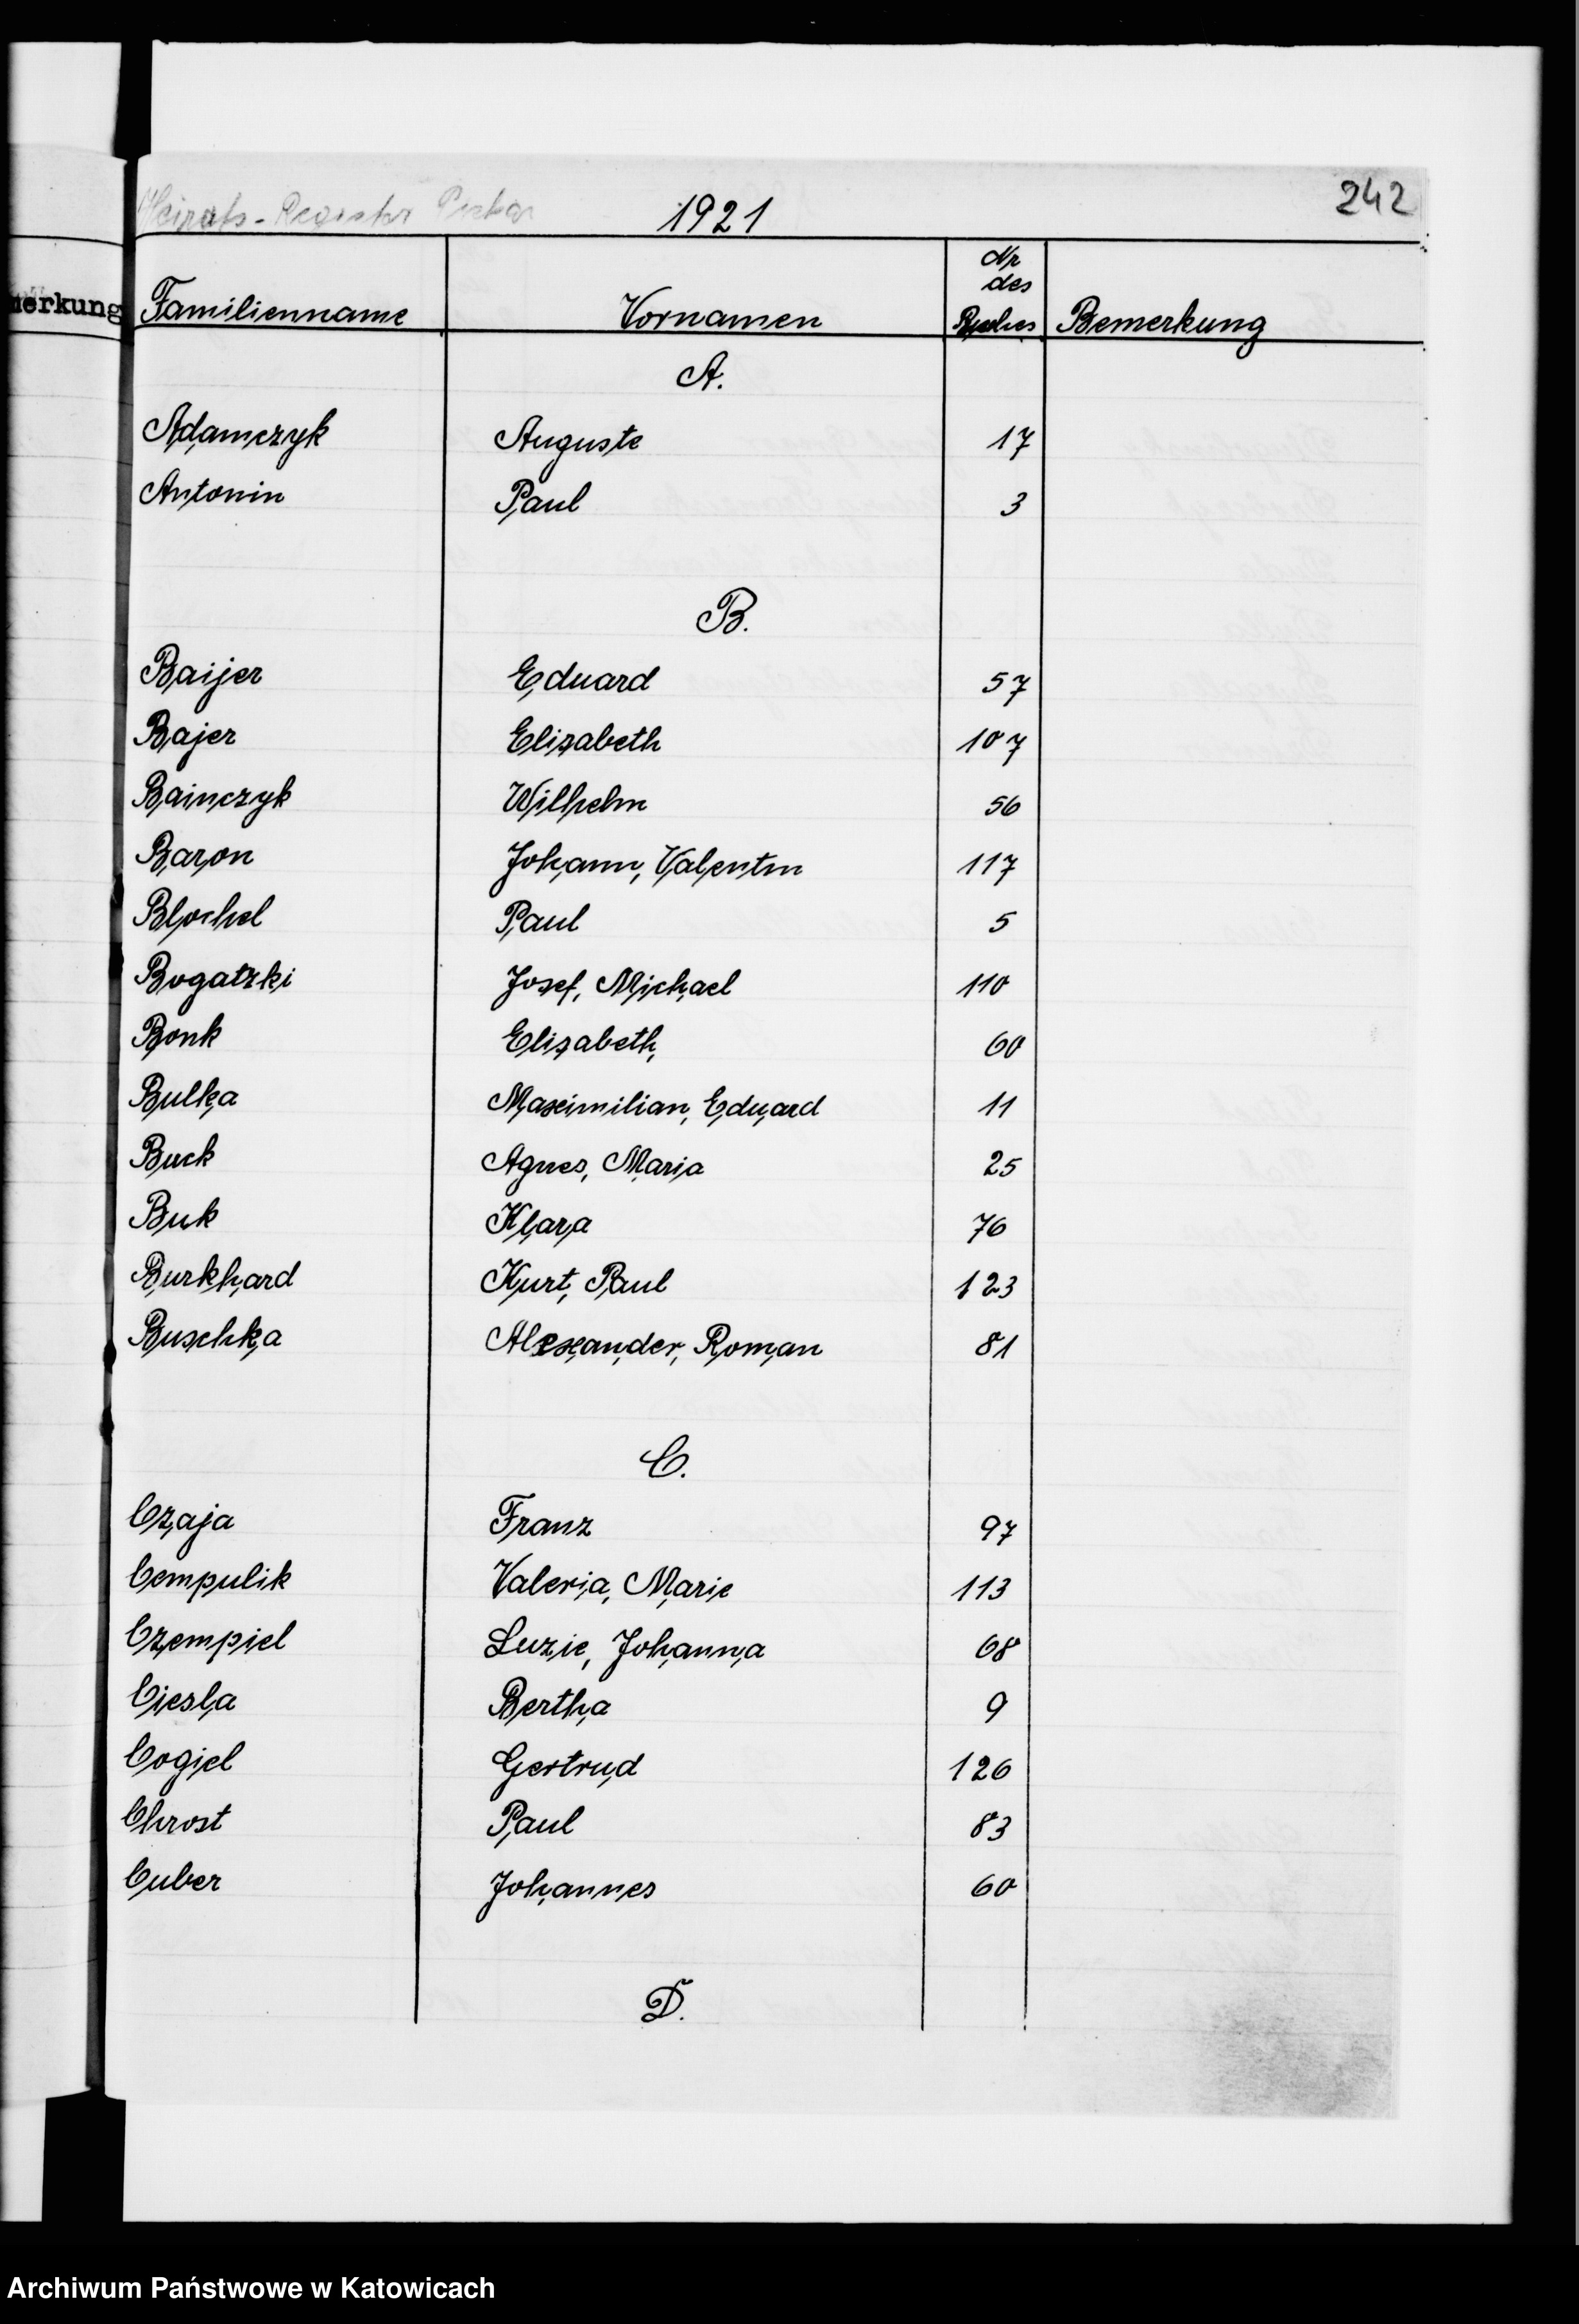 Heirats-Register
1921
242
Nr
des
Buches
erkung
Familienname Vornamen Bemerkung
A.
Adamczyk Auguste 17
Antonin Paul 3
B.
Baijer Eduard 57
Bajer Elisabeth 107
Bainczyk Wilhelm 56
Baron Johann, Valentin 117
Blochel Paul 5
Bogatzki Josef, Michael 110
Bonk Elisabeth 60
Bulka Maximilian, Eduard 11
Buck Agnes, Maria 25
Buk Klara 76
Burkhard Kurt, Paul 123
Buschka Alexander, Roman 81
C.
Czaja Franz 97
Cempulik Valeria, Marie 113
Czempiel Luzie, Johanna 68
Ciesla Bertha 9
Cogiel Gertrud 126
Chrost Paul 83
Cuber Johannes 60
D.
Archiwum Państwowe w Katowicach